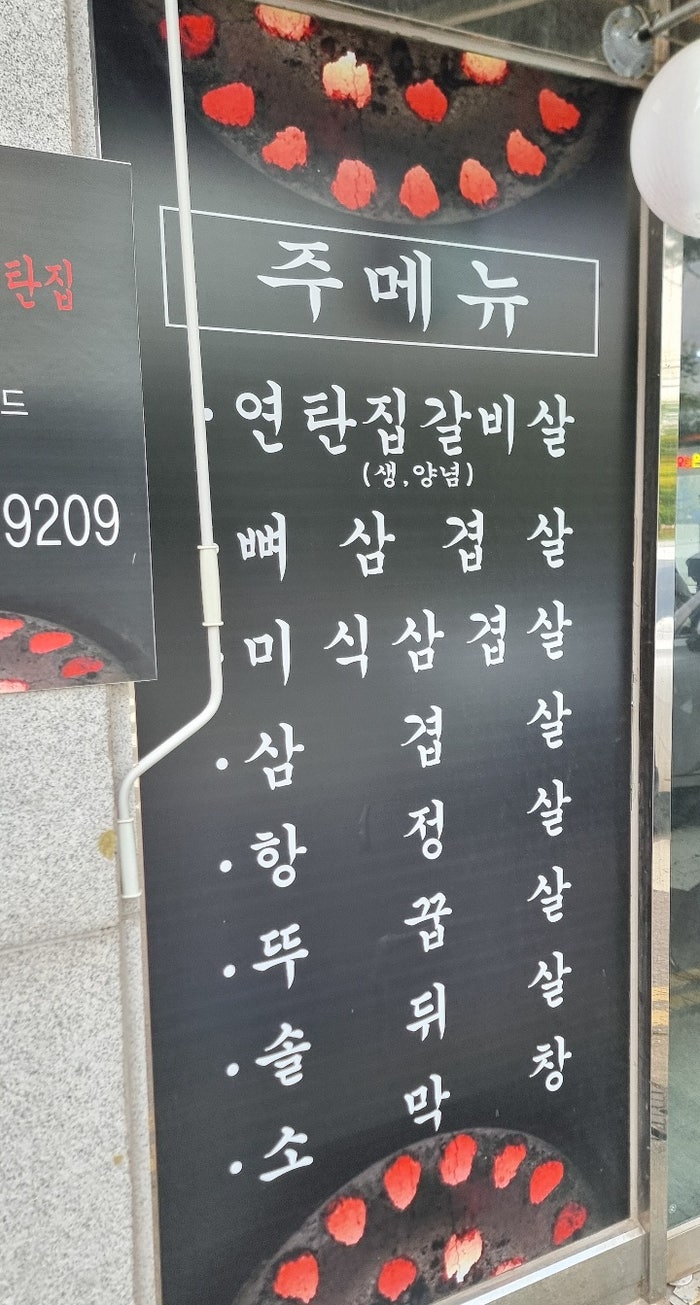 탄집
드
9209
주메뉴
· 연탄집갈비살
(생,양념)
뼈 삼 겹 살
· 미 식 삼 겹 살
· 삼 겹 살
· 항 정 살
· 뚜 꿉 살
· 솔 뒤 살
· 소 막 창